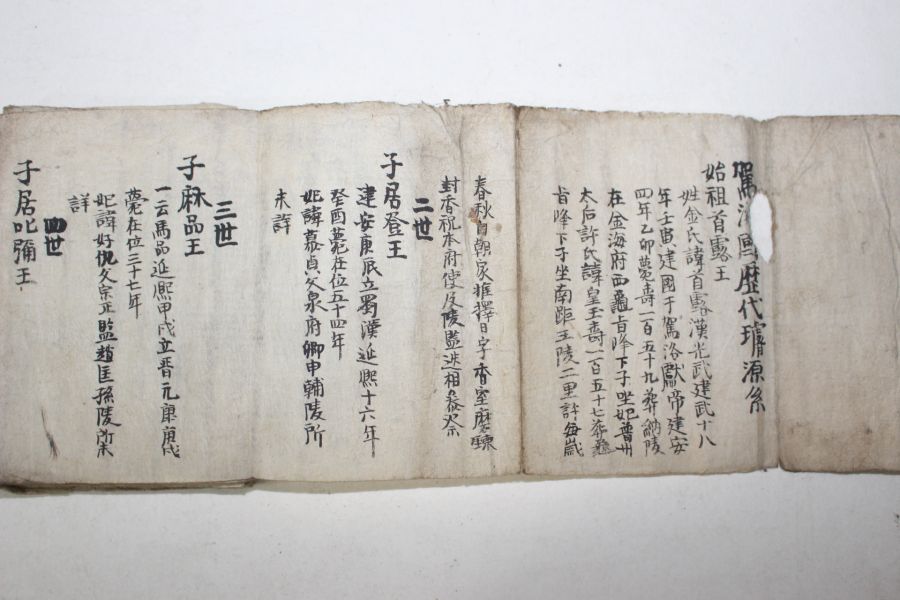 駕洛國歷代璿源系
始祖首露王
姓金氏諱首露漢光武建武十八
年壬寅建國于駕洛獻帝建安
四年乙卯薨壽一百五十九葬納陵
在金海府西龜旨峰下子坐妃普州
太后許氏諱皇玉壽一百五十七葬龜
旨峰下子坐南距王陵二里許每歲
春秋自朝家推擇日字香室磨鍊
封香祝本府使及陵監迭相叅祭
二世
子居登王
建安庚辰立蜀漢延熙十六年
癸酉薨在位五十四年
妃諱慕貞父泉府卿申輔陵所
未詳
三世
子麻品王
一云馬品延熙甲戌立晋元康庚戌
薨在位三十七年
妃諱好仇父宗正監趙匡孫陵所未
詳
四世
子居叱彌王